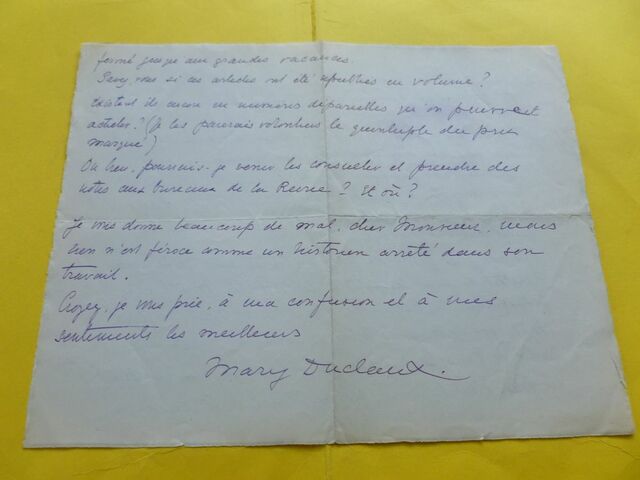 fermé jusque aux grandes vacances.
Savez-vous si ces articles ont été republiés en volume?
Existent-ils encore en numéros dépareillés qu'on pourrait
acheter? (Je les paierais volontiers le quintuple du prix
marqué)
Ou bien, pourrais-je venir les consulter et prendre des
notes aux bureaux de la Revue? Et où?
Je vous donne beaucoup de mal, cher Monsieur, mais
rien n'est féroce comme un historien arrêté dans son
travail.
Croyez, je vous prie, à ma confusion et à mes
sentiments les meilleurs
Mary Duclaux.